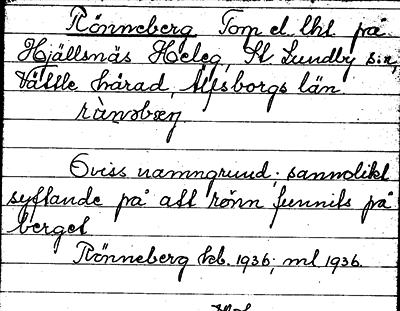 Rönneberg Torp el. lht på
Hjällsnäs Heleg, St Lundby s:n,
Vättle härad, Älfsborgs län.
rànəbæy.
Oviss namngrund; sannolikt
syftande på att rönn funnits på
berget
Rönneberg kb. 1936; ml 1936.